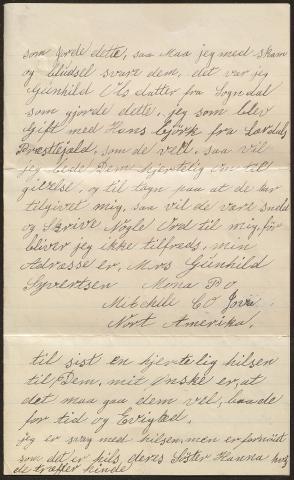 som gjorde dette, saa Maa jeg med skam
og bludsel svare dem, det var jeg
Gunhild Ols datter fra Sogndal
som gjorde dette, jeg som blev
Gift med Hans Bjørk fra Lardals
Præstejald, som de vel, saa vil
jeg bede Dem hjertelig om till
givelse, og til tægn paa at de har
tilgivet mig, saa vil de være snild
og Skrive Nogle Ord til mig, før
bliver jeg ikke tilfreds, min
Adrasse er, Mrs Gunhild
Syvertsen Mona P.O
Mitchile CO Iova
Nort Amerika,
til sist en hjertelig hilsen
til Dem, mit ønske er, at
det maa gaa dem vel, baade
for tid og Evighed,
jeg er svag med hilsen, men er fornöiet
som det er hils deres Söster Hanna
de træffer hinde